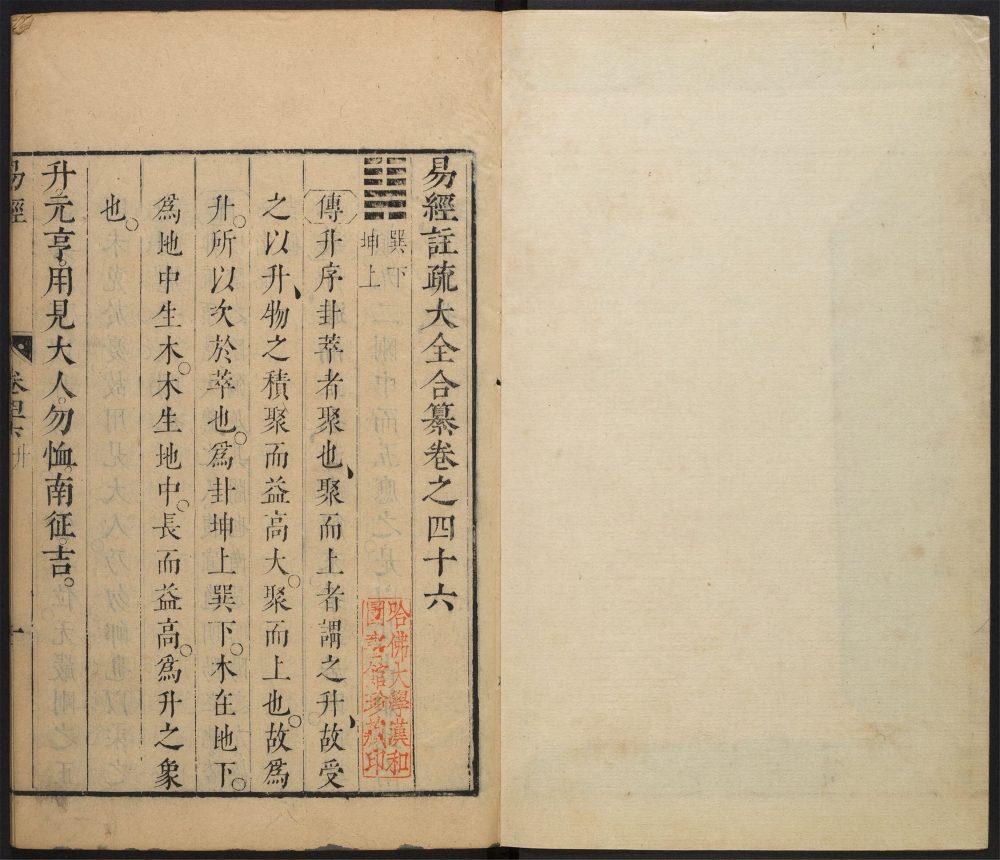 易經註疏大全合纂卷之四十六
巽下
坤上
傳升序卦萃者聚也聚而上者謂之升故受
之以升物之積聚而益高大聚而上也故爲
升所以次於萃也爲卦坤上巽下木在地下
爲地中生木木生地中長而益高爲升之象
也
升元亨用見大人勿恤南征吉
易經
卷四六 升
一
哈佛大學漢和
圖書館珍藏印